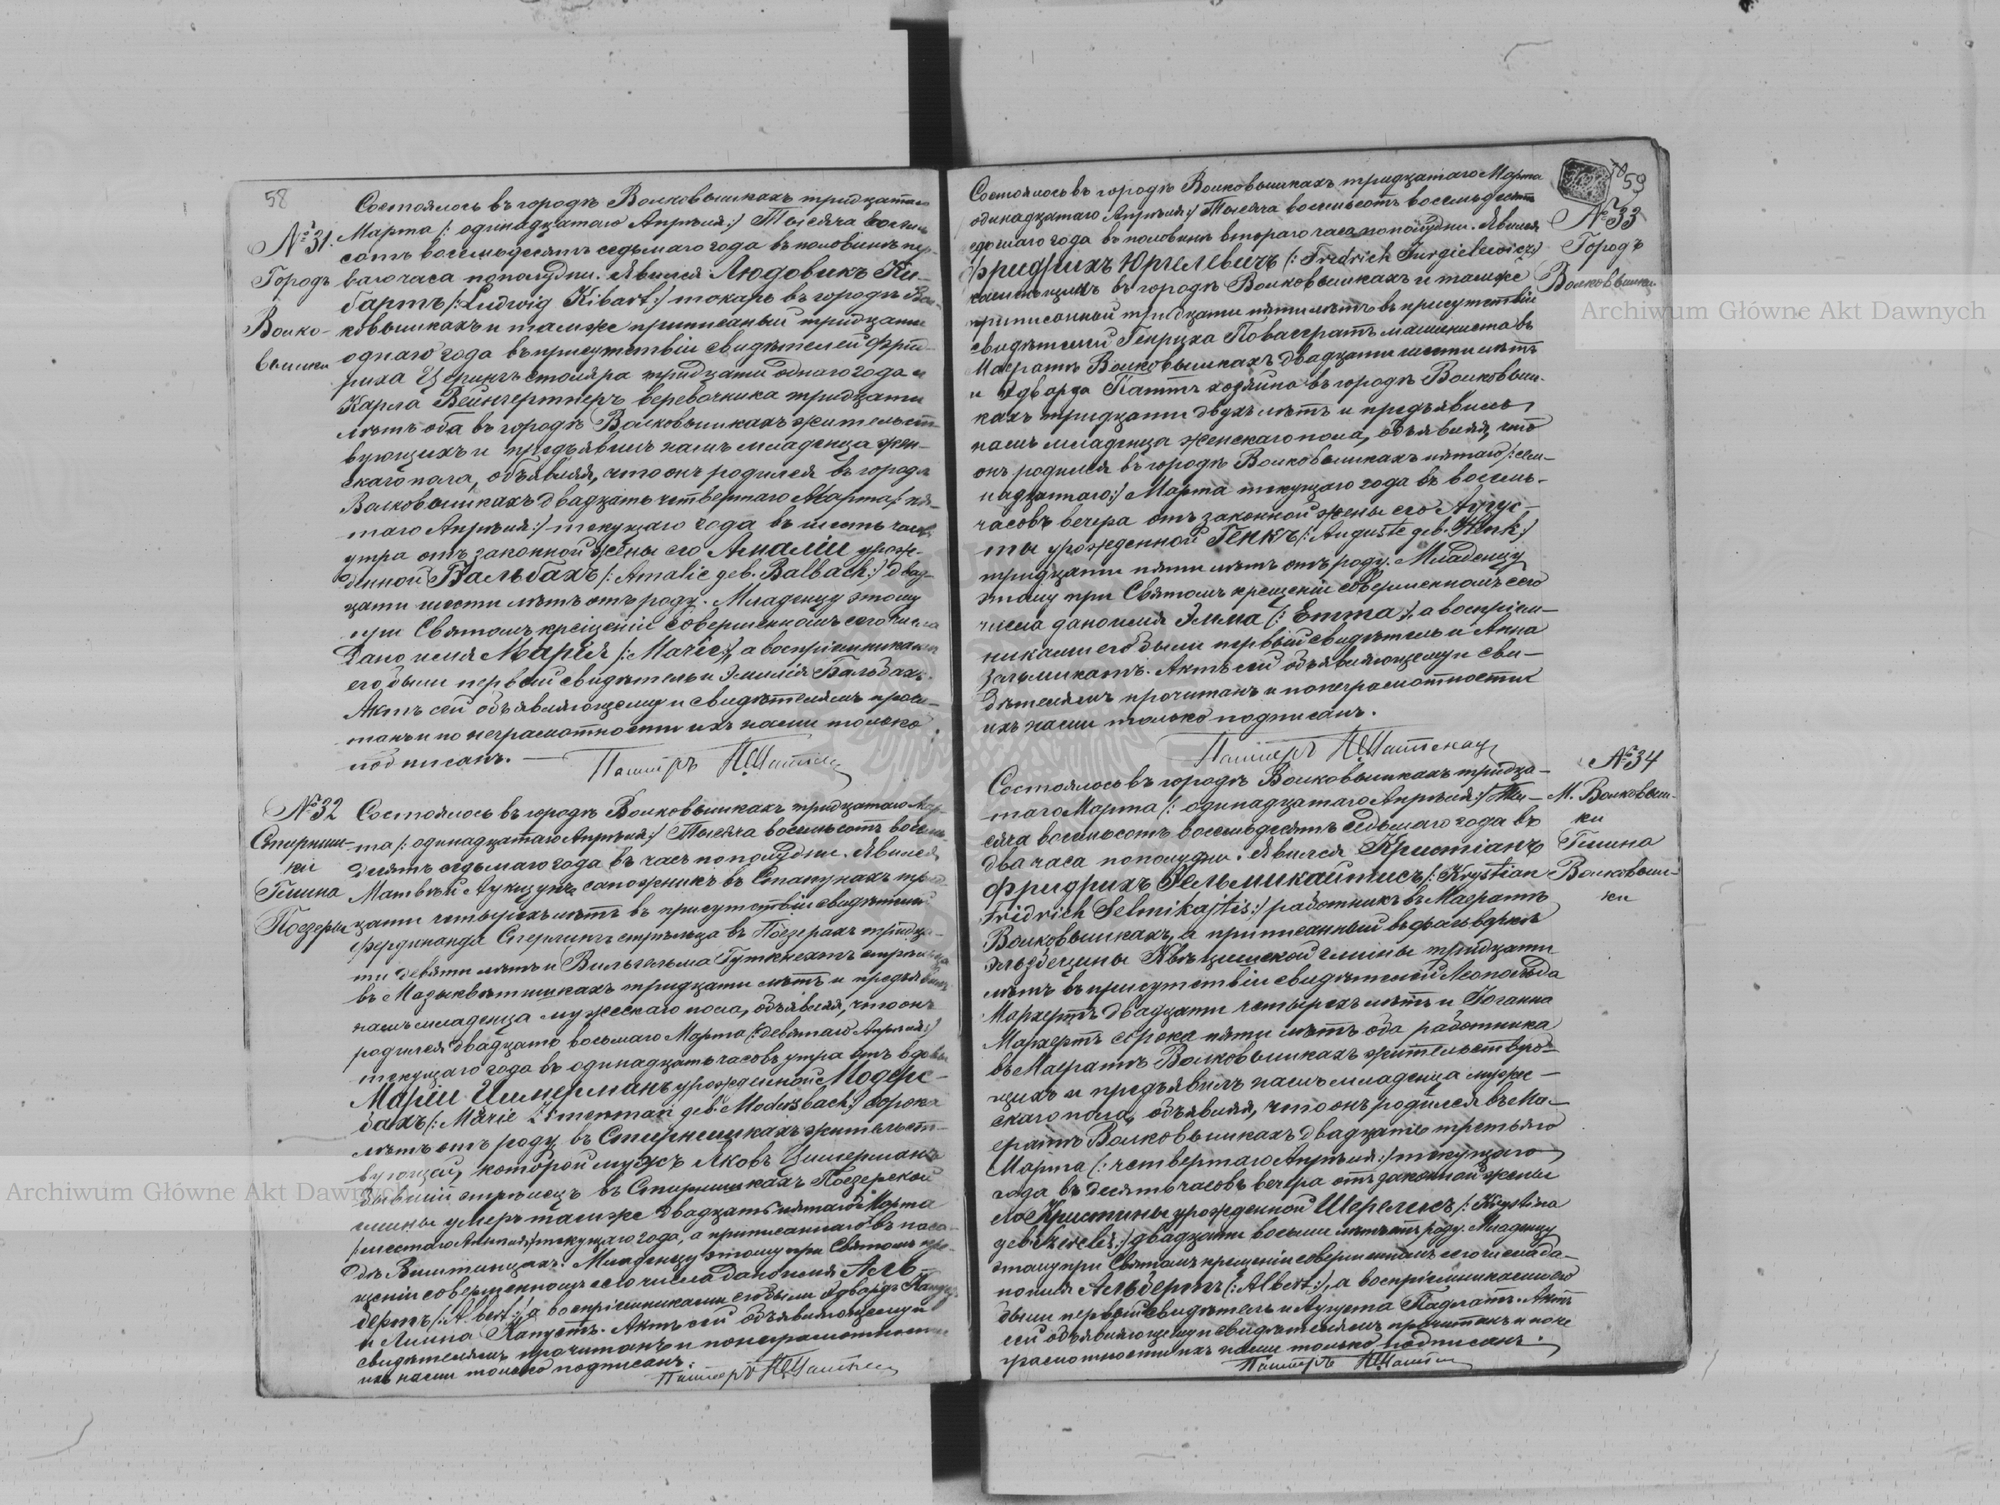 58
№ 31.
Городъ
Волко-
вышки
Состоялось въ городѣ Волковышкахъ тридцатаго
Марта /: одинадцатаго Апрѣля:/ Тысяча восемь
сотъ восемьдесятъ седьмаго года въ половинѣ пер-
ваго часа пополудни. Явился Людовикъ Ки-
бартъ /: Ludwig Kibart:/ токарь въ городѣ Вол-
ковышкахъ и тамже приписанный тридцати
одного года въ присутствіи свидѣтелей Фрид-
риха Церингъ столяра тридцати одного года и
Карла Вейнгертнеръ веревочника тридцати
лѣтъ оба въ городѣ Волковышкахъ жительст-
вующихъ и предъявилъ намъ младенца жен-
скаго пола, объявляя, что онъ родился въ городѣ
Волковышкахъ двадцать четвертаго Марта /: пя-
таго Апрѣля:/ текущаго года въ шесть часовъ
утра отъ законной жены его Амаліи урож-
денной Бальбахъ /: Amalie geb. Balbach:/ двад-
цати шести лѣтъ отъ роду. Младенцу этому
при Святомъ крещеніи совершенномъ сего числа
дано имя Марія /: Marie:/, а воспріемниками
его были первый свидѣтель и Эмилія Бальбахъ.
Актъ сей объявляющему и свидѣтелямъ прочи-
танъ и по неграмотности ихъ нами только
подписанъ. —
Пасторъ
№ 32
Стирниш-
ки
Гмина
Поезеры
Состоялось въ городѣ Волковышкахъ тридцатаго Мар-
та /: одинадцатаго Апрѣля:/ Тысяча восемьсотъ восемь-
десятъ седьмаго года въ часъ пополудни. Явился
Матвѣй сапожникъ въ трид-
цати четырехъ лѣтъ въ присутствіи свидѣтелей
Фердинанда стрѣльца въ Поезерахъ тридца-
ти девяти лѣтъ и Вильгельма Гуткнехтъ стрѣльца
въ тридцати лѣтъ и предъявилъ
намъ младенца мужескаго пола, объявляя, что онъ
родился двадцать восьмаго Марта /: девятаго Апрѣля:/
текущаго года въ одинадцать часовъ утра отъ вдовы
Маріи Цимерманъ урожденной Модерс-
бахъ /: Marie Zimerman geb. Modersbach:/ сорока
лѣтъ отъ роду въ Стирнишкахъ жительст-
вующей, которой мужъ Яковъ Цимерманъ
бывшій стрѣлецъ въ Стирнишкахъ Поезерской
гмины умеръ тамже двадцать пятаго Марта
/: шестаго Апрѣля:/ текущаго года, а приписаннаго въ поса-
дѣ Виштынцахъ. Младенцу этому при Святомъ кре-
щеніи совершенномъ сего числа дано имя Аль-
бертъ /: Albert:/, а воспріемниками его были Эдвардъ
и Лина Капустъ. Актъ сей объявляющему и
свидѣтелямъ прочитанъ и по неграмотности
ихъ нами только подписанъ.
Пасторъ
59
№ 33
Городъ
Волковышки
Состоялось въ городѣ Волковышкахъ тридцатаго Марта
одинадцатаго Апрѣля:/ Тысяча восемьсотъ восемьдесятъ
седьмаго года въ половинѣ втораго часа пополудни. Явился
Фридрихъ Юргелевичъ /: Fridrich Jurgielewicz:/
каменьщикъ въ городѣ Волковышкахъ и тамже
приписанный тридцати пяти лѣтъ въ присутствіи
свидѣтелей Генриха машиниста въ
Маератѣ Волковышкахъ двадцати шести лѣтъ
и Эдварда хозяина въ городѣ Волковыш-
кахъ тридцати двухъ лѣтъ и предъявилъ
намъ младенца женскаго пола, объявляя, что
онъ родился въ городѣ Волковышкахъ пятаго /: сем-
надцатаго:/ Марта текущаго года въ восемь
часовъ вечера отъ законной жены его Авгус-
ты урожденной Генкъ /: Auguste geb. Henk:/
тридцати пяти лѣтъ отъ роду. Младенцу
этому при Святомъ крещеніи совершенномъ сего
числа дано имя Эмма /: Emma:/, а воспріем-
никами его были первый свидѣтель и Анна
Актъ сей объявляющему и сви-
дѣтелямъ прочитанъ и по неграмотности
ихъ нами только подписанъ.
Пасторъ
№ 34
М. Волковыш-
ки
Гмина
Волковыш-
ки
Состоялось въ городѣ Волковышкахъ тридца-
таго Марта /: одинадцатаго Апрѣля:/ Ты-
сяча восемьсотъ восемьдесятъ седьмаго года въ
два часа пополудни. Явился Кристіанъ
Фридрихъ Сельмикайтисъ /: Krystian
Fridrich Selmikajtis:/ работникъ въ Маератѣ
Волковышкахъ, а приписанный въ фольваркѣ
гмины тридцати
лѣтъ въ присутствіи свидѣтелей Леопольда
Мархертъ двадцати четырехъ лѣтъ и Іоганна
Мархертъ сорока пяти лѣтъ оба работника
въ Маератѣ Волковышкахъ жительствую-
щихъ и предъявилъ намъ младенца муже-
скаго пола, объявляя, что онъ родился въ Ма-
ератѣ Волковышкахъ двадцать третьяго
Марта /: четвертаго Апрѣля:/ текущаго
года въ десять часовъ вечера отъ законной жены
его Кристины урожденной /: Krystina
geb. двадцати восьми лѣтъ отъ роду. Младенцу
этому при Святомъ крещеніи совершенномъ сего числа да-
но имя Альбертъ /: Albert:/, а воспріемниками его
были первый свидѣтель и Августа Актъ
сей объявляющему и свидѣтелямъ прочитанъ и по не
грамотности ихъ нами только подписанъ.
Пасторъ
Archiwum Główne Akt Dawnych
Archiwum Główne Akt Dawnych